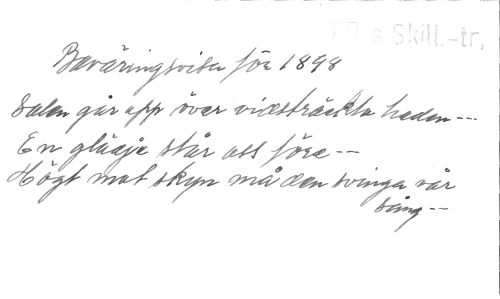 KB:s Skill.-tr.
Beväringsvisa för 1898
Solen går upp över vidsträckta heden --
En glädje står oss före --
Högt mot skyn må den svinga vår
sång --